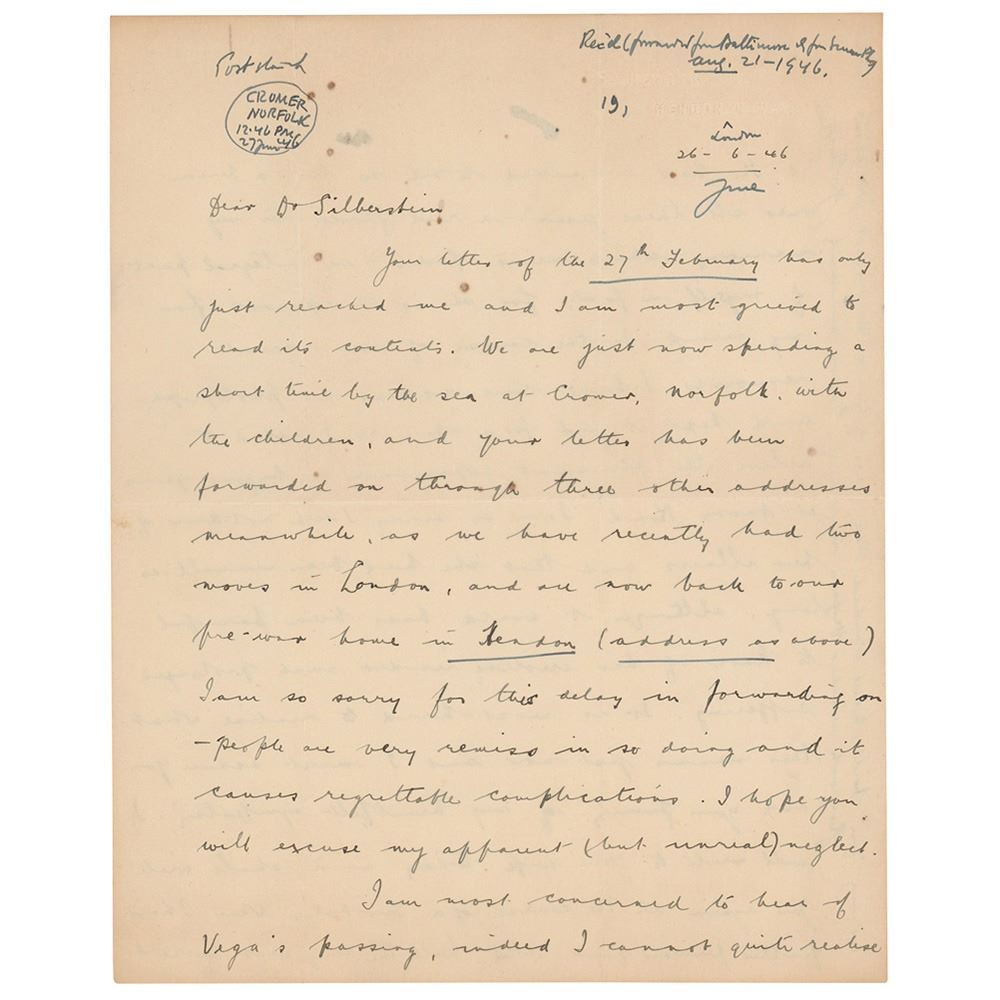 Rec'd (forwarded from Baltimore &
Aug. 21-1946.
Postmark
CROMER
NORFOLK
12.46 PM
27 June 46
19,
London
26 - 6 - 46
June
Dear Dr Silberstein
Your letter of the 27th February has only
just reached me and I am most grieved to
read its contents. We are just now spending a
short time by the sea at Cromer, Norfolk. with
the children, and your letter has been
forwarded on through three other addresses
meanwhile, as we have recently had two
moves in London, and are now back to our
pre-war home in Hendon (address as above)
I am so sorry for this delay in forwarding on
- people are very remiss in so doing and it
causes regrettable complications. I hope you
will excuse my apparent (but unreal) neglect.
I am most concerned to hear of
Vega's passing, indeed I cannot quite realise